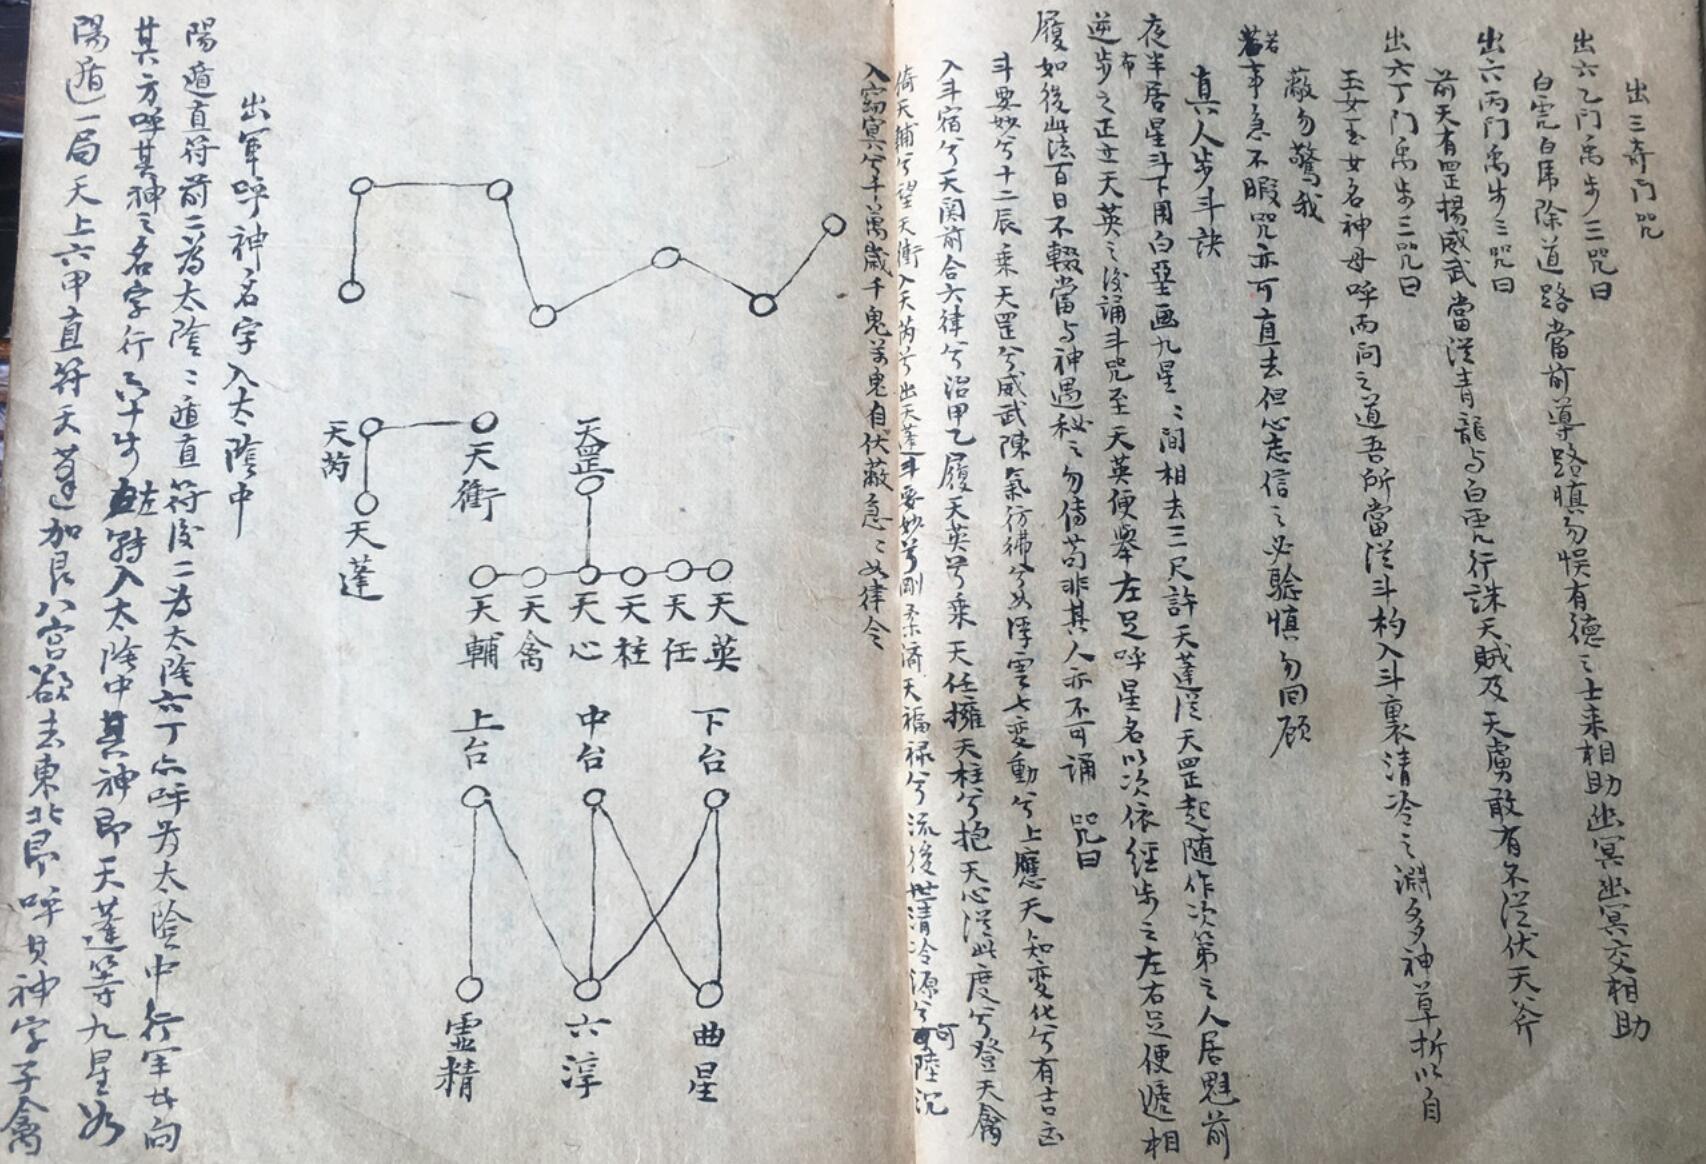 出三奇門咒
出六乙门禹步三咒曰
白虎白馬除道路當前導路慎勿悞有德之士来相助幽冥幽冥交相助
出六丙門禹步三咒曰
前天有罡揚威武當従青龍与白虎行誅天賊及天虜敢有不従伏天斧
出六丁门禹步三咒曰
玉女玉女名神母呼丙问之道吾所當従斗杓入斗裏清冷之淵多神草折以自
蔽勿驚我
若事急不暇咒亦可直去但心志信之必驗慎勿回顾
真人步斗訣
夜半居星斗下用白堊画九星〻間相去三尺許天蓬従天罡起随作次第之人居魁前
逆步之正立天英之後誦斗咒至天英便舉左足呼星名以次依經步之左右足便遞相
布
履如後此法百日不輟當与神遇秘之勿傳苟非其人亦不可誦 咒曰
斗要妙兮十二辰乘天罡兮威武陳氣彷彿兮如浮雲七变動兮上應天知变化兮有吉凶
入斗宿兮天関前合六律兮治甲乙履天英兮乘天任擁天柱兮抱天心従此度兮登天禽
倚天輔兮望天衝入天芮兮出天蓬斗要妙兮剛柔濟天福禄兮流後世清冷源兮可陸沉
入窈冥兮千萬歲千鬼萬鬼自伏蔽急〻如律令
天芮
天衝
天蓬
天罡
天輔
天禽
天心
天柱
天任
天英
上台
中台
下台
霊精
六淳
曲星
出軍呼神名字入太陰中
陽遁直符前二為太陰〻遁直符後二为太陰六丁亦呼为太陰中行军廿向
其方呼其神之名字行六十步左轉入太陰中其神即天蓬等九星如
陽遁一局天上六甲直符天蓬加艮八宫欲去東北即呼其神字子禽